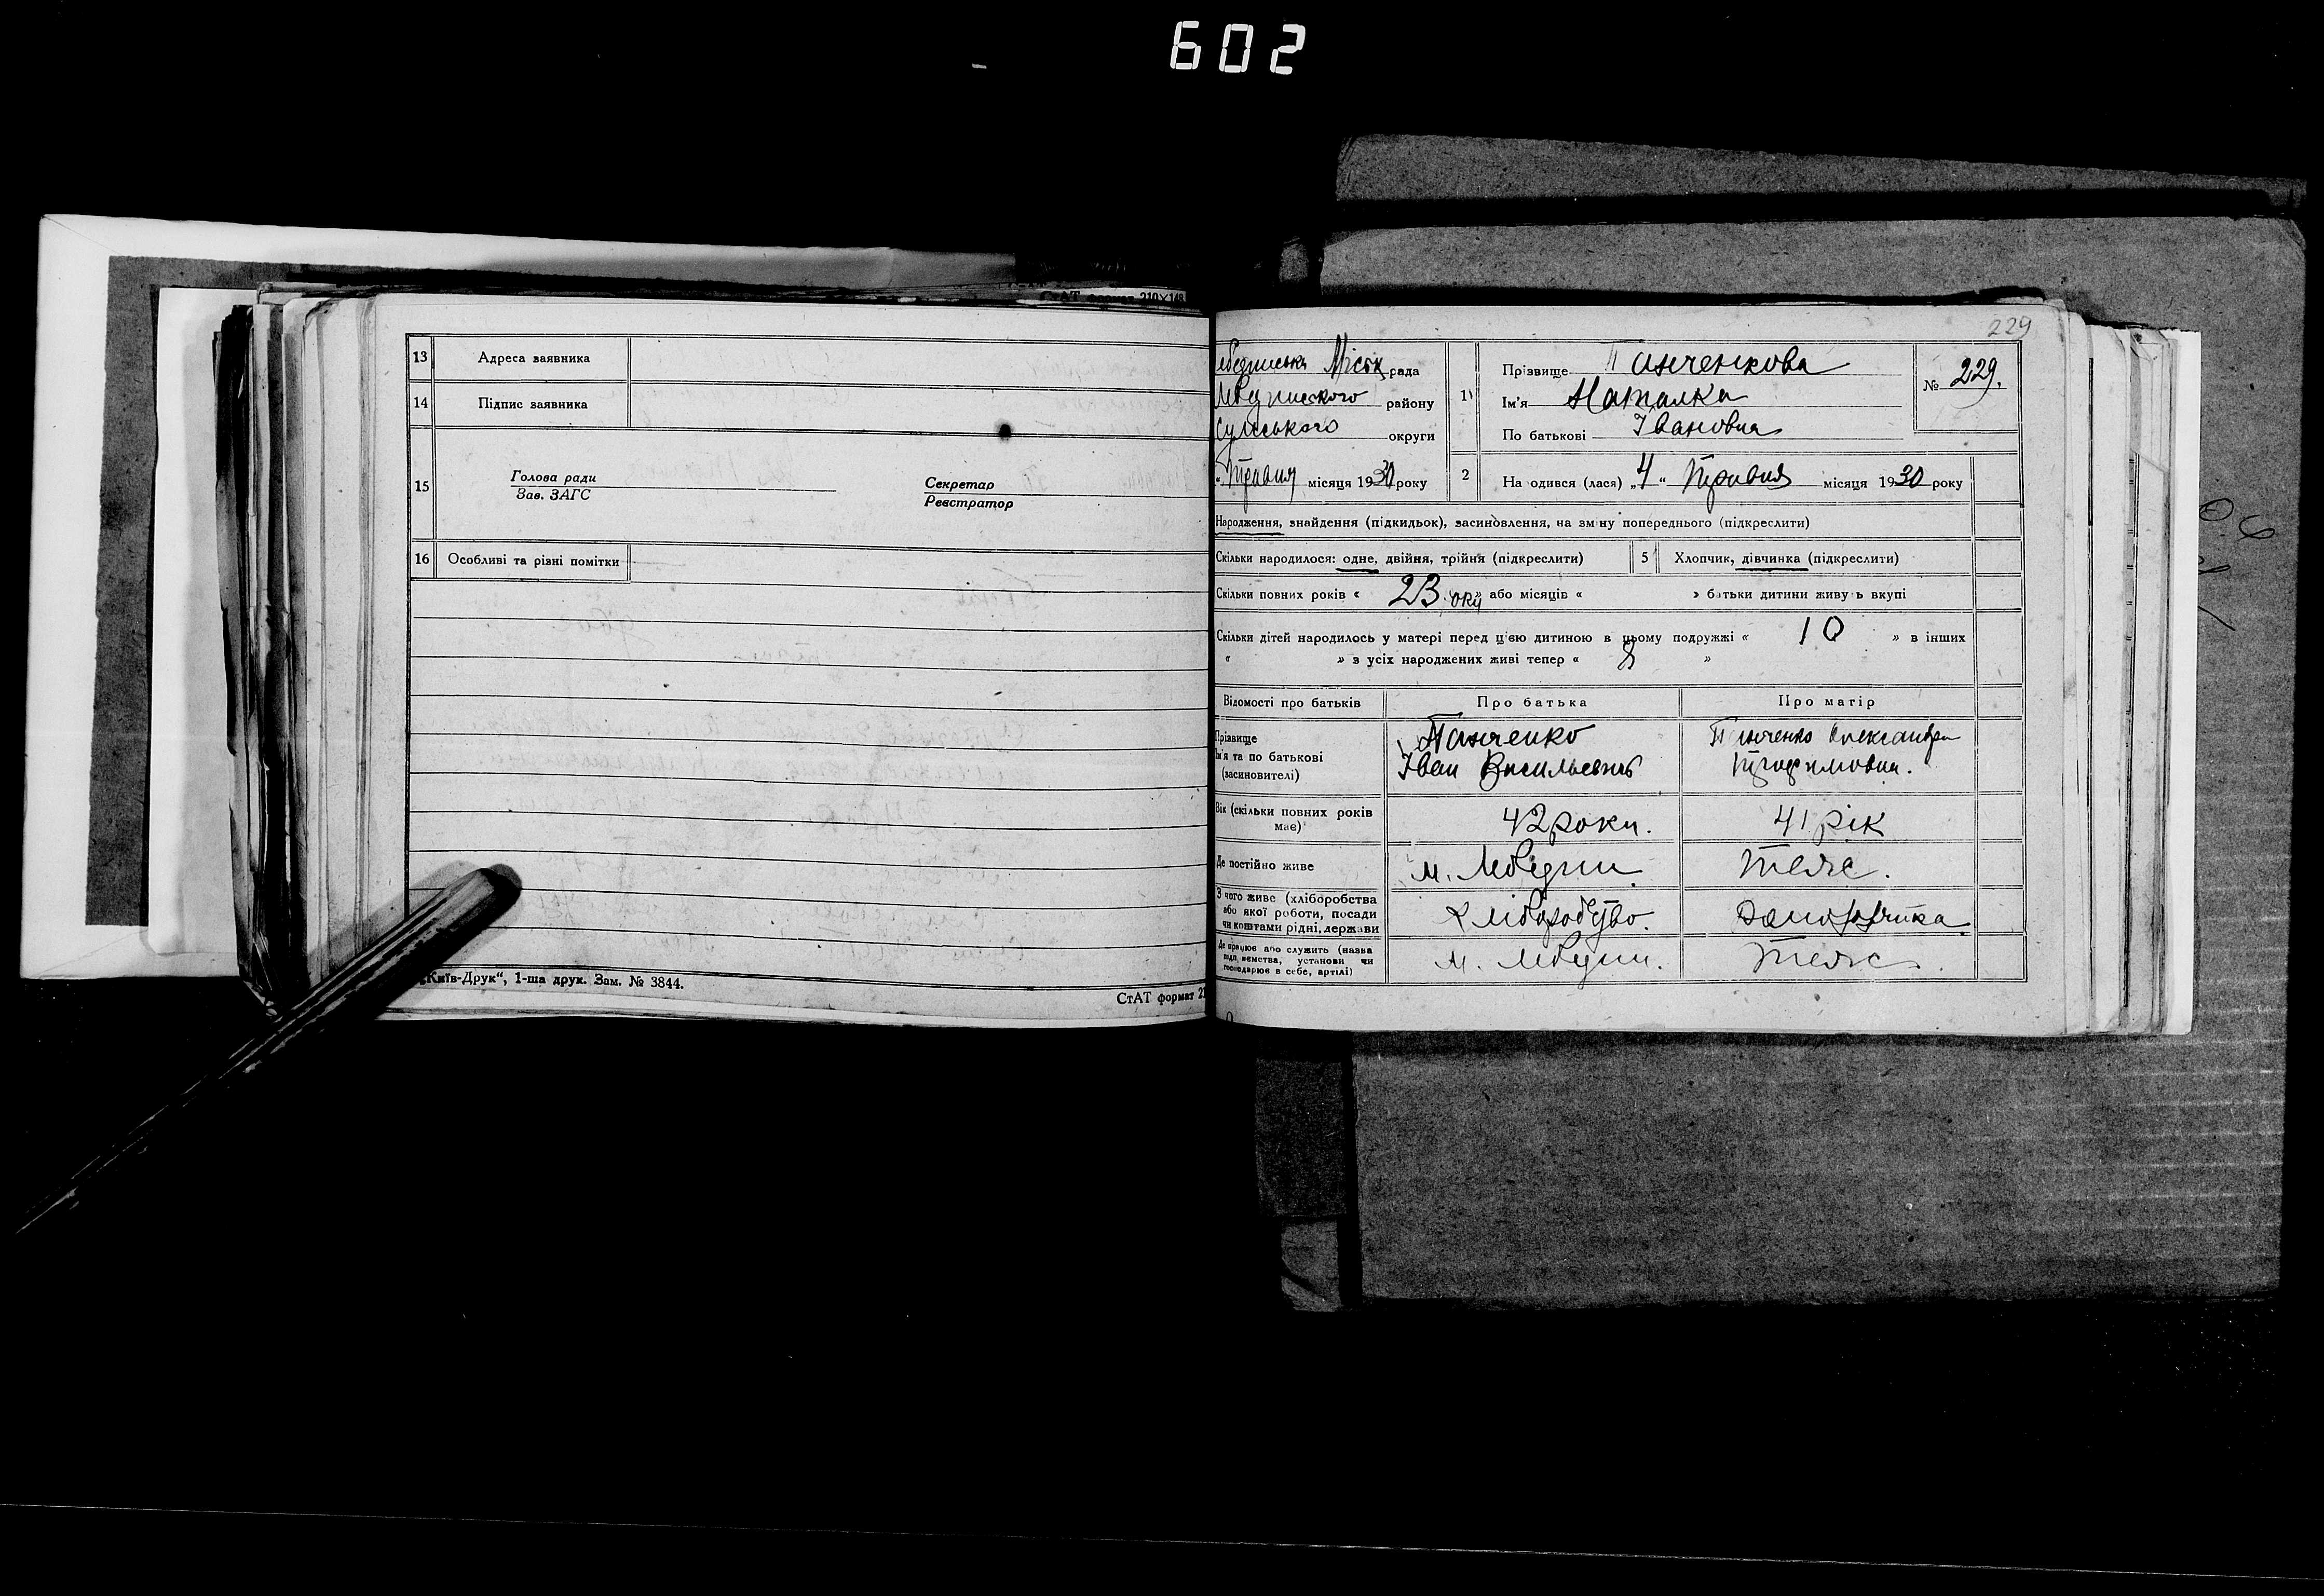 602
СтАТ формат 210×148
13 Адреса заявника
14 Підпис заявника
15 Голова ради
Зав. ЗАГС
Секретар
Реєстратор
16 Особливі та різні помітки
„Київ-Друк“, 1-ша друк. Зам. № 3844.
СтАТ формат 21
229
Міськ рада
району
Сумського округи
„ Травня місяця 1930 року
1) Прізвище Панченкова
Ім'я Наталка
По батькові Івановна
№ 229.
2 На одився (лася) „4“ Травня місяця 1930 року
Народження, знайдення (підкидьок), засиновлення, на зміну попереднього (підкреслити)
Скільки народилося: одне, двійня, трійня (підкреслити) 5 Хлопчик, дівчинка (підкреслити)
Скільки повних років « 23 оки » або місяців « » батьки дитини живуть вкупі
Скільки дітей народилось у матері перед цією дитиною в цьому подружжі « 10 » в інших
« » з усіх народжених живі тепер « 8 »
Відомості про батьків Про батька Про матір
Прізвище
Ім'я та по батькові
(засиновителі)
Панченко
Іван Васильевич
Панченко Александра
Трофимовна.
Вік (скільки повних років має) 42 роки. 41 рік
Де постійно живе м. Лебедин Теже.
З чого живе (хліборобства
або якої роботи, посади
чи коштами рідні, держави
Хліборобство. Домохазяйка
Де працює або служить (назва
підприємства, установи чи
господарює в себе, артілі)
м. Лебедин. Теже.